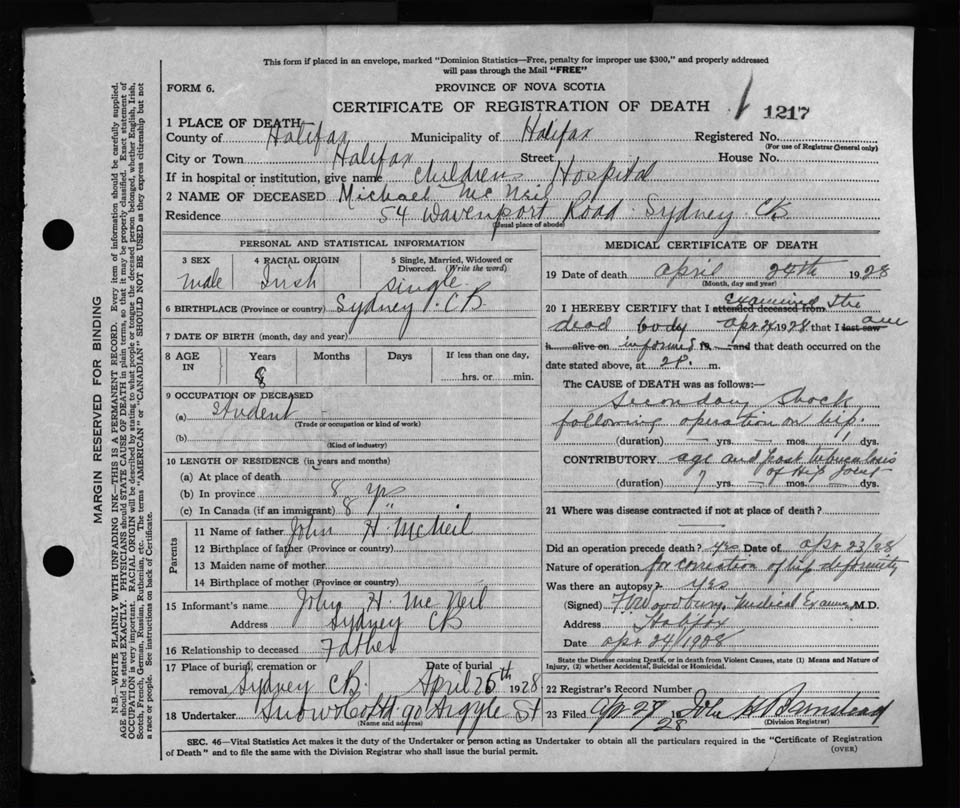 This form if placed in an envelope, marked "Dominion Statistics—Free, penalty for improper use $300," and properly addressed
will pass through the Mail "FREE"
FORM 6.
PROVINCE OF NOVA SCOTIA
CERTIFICATE OF REGISTRATION OF DEATH
1217
1 PLACE OF DEATH
County of Halifax Municipality of Halifax Registered No.
(For use of Registrar General only)
City or Town Halifax Street House No.
If in hospital or institution, give name Childrens Hospital
2 NAME OF DECEASED Michael McNeil
Residence 54 Davenport Road Sydney CB
(Usual place of abode)
PERSONAL AND STATISTICAL INFORMATION
3 SEX 4 RACIAL ORIGIN 5 Single, Married, Widowed or
Divorced. (Write the word)
Male Irish Single
6 BIRTHPLACE (Province or country) Sydney CB
7 DATE OF BIRTH (month, day and year)
8 AGE Years Months Days If less than one day,
IN 8 hrs. or min.
9 OCCUPATION OF DECEASED
(a) Student
(Trade or occupation or kind of work)
(b)
(Kind of industry)
10 LENGTH OF RESIDENCE (in years and months)
(a) At place of death
(b) In province 8 yrs
(c) In Canada (if an immigrant) 8 "
Parents
11 Name of father John H. McNeil
12 Birthplace of father (Province or country)
13 Maiden name of mother
14 Birthplace of mother (Province or country)
15 Informant's name John H. McNeil
Address Sydney CB
16 Relationship to deceased Father
17 Place of burial, cremation or Date of burial
removal Sydney CB April 26th 1928
18 Undertaker Snow & Co Ltd 90 Argyle St
(Name and address)
MEDICAL CERTIFICATE OF DEATH
19 Date of death April 24th 1928
(Month, day and year)
20 I HEREBY CERTIFY that I attended deceased from examined the
dead body apr 24 1928 that I last saw am
h alive on informed 19 and that death occurred on the
date stated above, at 2 P. m.
The CAUSE of DEATH was as follows:—
Secondary Shock
following operation on hip.
(duration) — yrs. — mos. 1 dys.
CONTRIBUTORY age and past tuberculosis
of hip joint
(duration) 7 yrs. — mos. — dys.
21 Where was disease contracted if not at place of death?
Did an operation precede death? yes Date of apr 23/28
Nature of operation for correction of hip deformity
Was there an autopsy? Yes
(Signed) Medical Examiner M.D.
Address Halifax
Date apr 24/1928
State the Disease causing Death, or in death from Violent Causes, state (1) Means and Nature of
Injury, (2) whether Accidental, Suicidal or Homicidal.
22 Registrar's Record Number
23 Filed Apr 27 1928 John H Barnstead
(Division Registrar)
SEC. 46—Vital Statistics Act makes it the duty of the Undertaker or person acting as Undertaker to obtain all the particulars required in the "Certificate of Registration
of Death" and to file the same with the Division Registrar who shall issue the burial permit. (OVER)
MARGIN RESERVED FOR BINDING
N.B.—WRITE PLAINLY WITH UNFADING INK—THIS IS A PERMANENT RECORD. Every item of information should be carefully supplied.
AGE should be stated EXACTLY. PHYSICIANS should STATE CAUSE OF DEATH in plain terms, so that it may be properly classified. Exact statement of
OCCUPATION is very important. RACIAL ORIGIN will be described by stating to what people or tongue the deceased person belonged, whether English, Irish,
Scotch, French, German, Russian, Ruthenian, etc. The terms "AMERICAN" or "CANADIAN" SHOULD NOT BE USED as they express citizenship but not
a race or people. See instructions on back of Certificate.